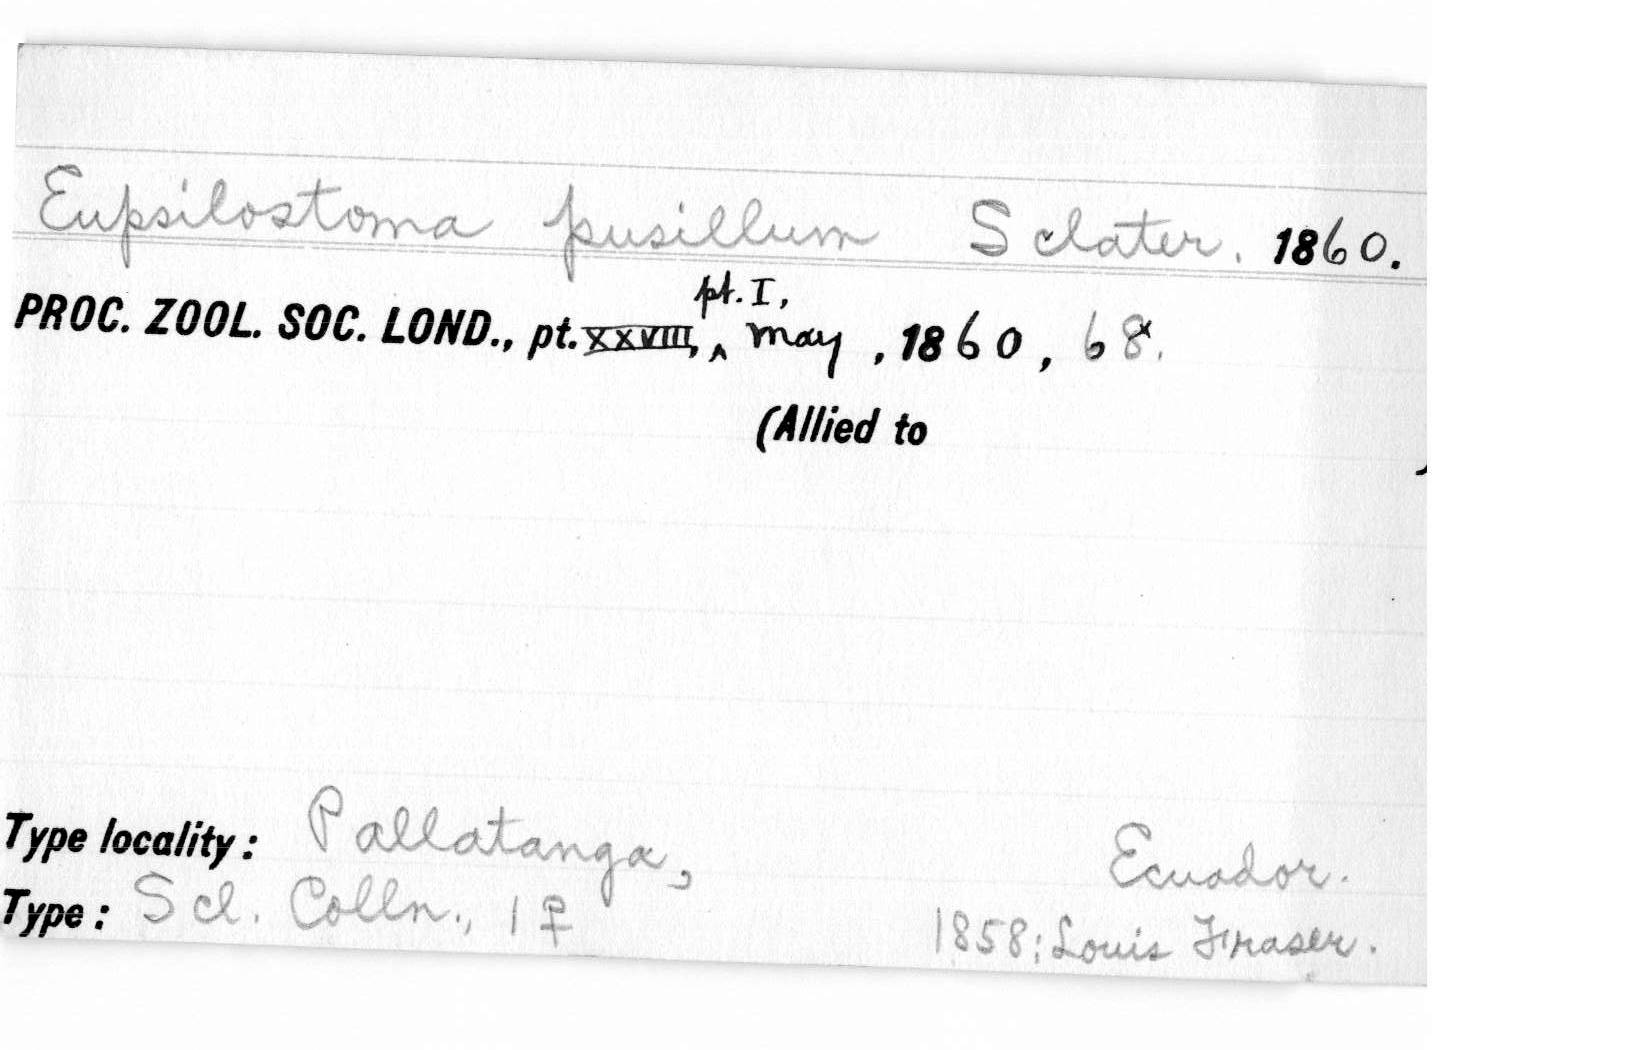 Eupsilostoma pusillum Sclater. 1860.
pt. I,
PROC. ZOOL. SOC. LOND., pt. XXVIII, ^ May, 1860, 68*.
(Allied to )
Type locality: Pallatanga, Ecuador.
Type: Scl. Colln., 1 ♀ 1858; Louis Fraser.